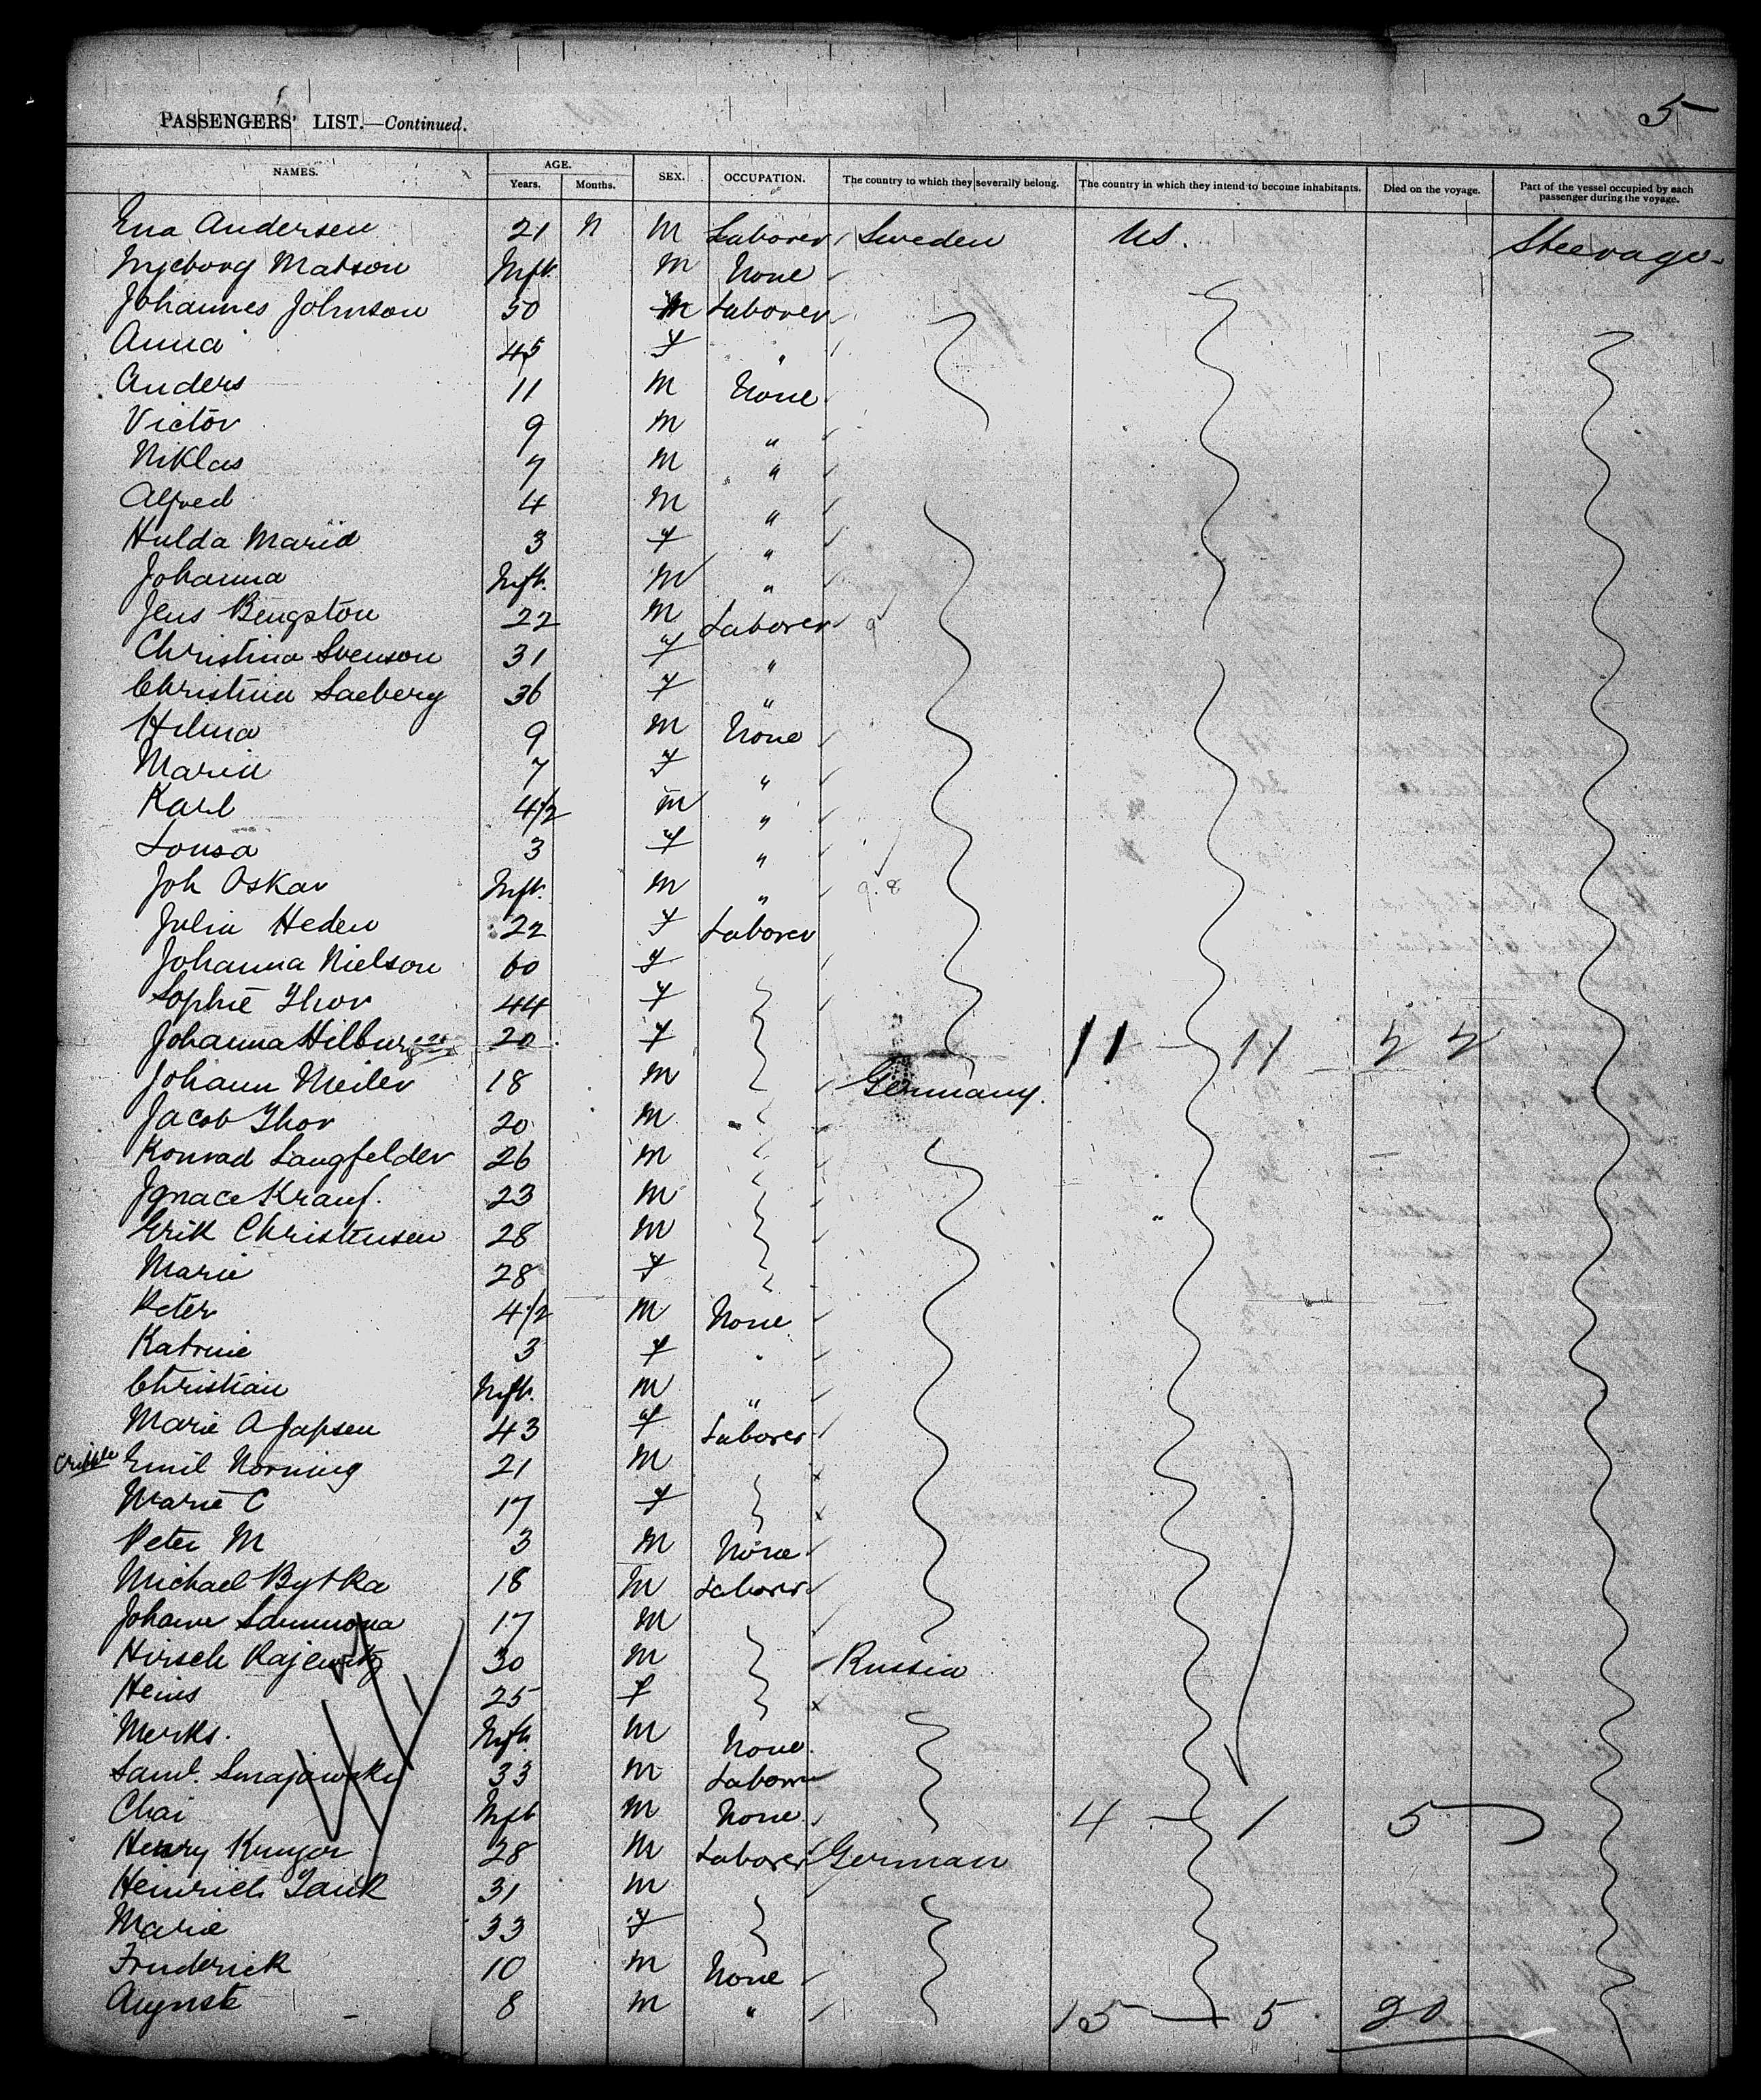 5
PASSENGERS' LIST.—Continued.
NAMES. AGE. Years. Months. SEX. OCCUPATION. The country to which they severally belong. The country in which they intend to become inhabitants. Died on the voyage. Part of the vessel occupied by each passenger during the voyage.
Ena Andersen 21 M Laborer Sweden US. Steerage
Ingeborg Matson Inft. M None
Johannes Johnson 50 M Laborer
Anna 45 F "
Anders 11 M None
Victor 9 M "
Niklas 7 M "
Alfred 4 M "
Hulda Maria 3 F "
Johanna Inft. M "
Jens Bengston 22 M Laborer
Christina Svenson 31 F "
Christina Saeberg 36 F "
Hilma 9 M None
Maria 7 F "
Karl 4 1/2 M "
Lousa 3 F "
Joh Oskar Inft. M " 9.8
Julia Heden 22 F Laborer
Johanna Nielson 60 F
Sophie Thor 44 F
Johanna 20 F 11 — 11 22
Johann Meiler 18 M Germany.
Jacob Thor 20 M
Konrad Langfelder 26 M
Ignace Krauf. 23 M
Erik Christensen 28 M
Marie 28 F
Peter 4 1/2 M None
Katrine 3 F "
Christian Inft. M "
Marie A Japsen 43 F Laborer
Cripple Emil Norning 21 M
Marie C 17 F
Peter M 3 M None
Michael Bytka 18 M Laborer
17 M
Hirsch Rajewitz 30 M Russia
Heins 25 F
Merks. Inft. M None
Saml. Smajowsky 33 M Laborer
Chai Inft M None 4 — 1 5
Henry Kruger 28 M Laborer German
Heinrich Tank 31 M
Marie 33 F
Frederick 10 M None
August 8 M " 15 — 5 20